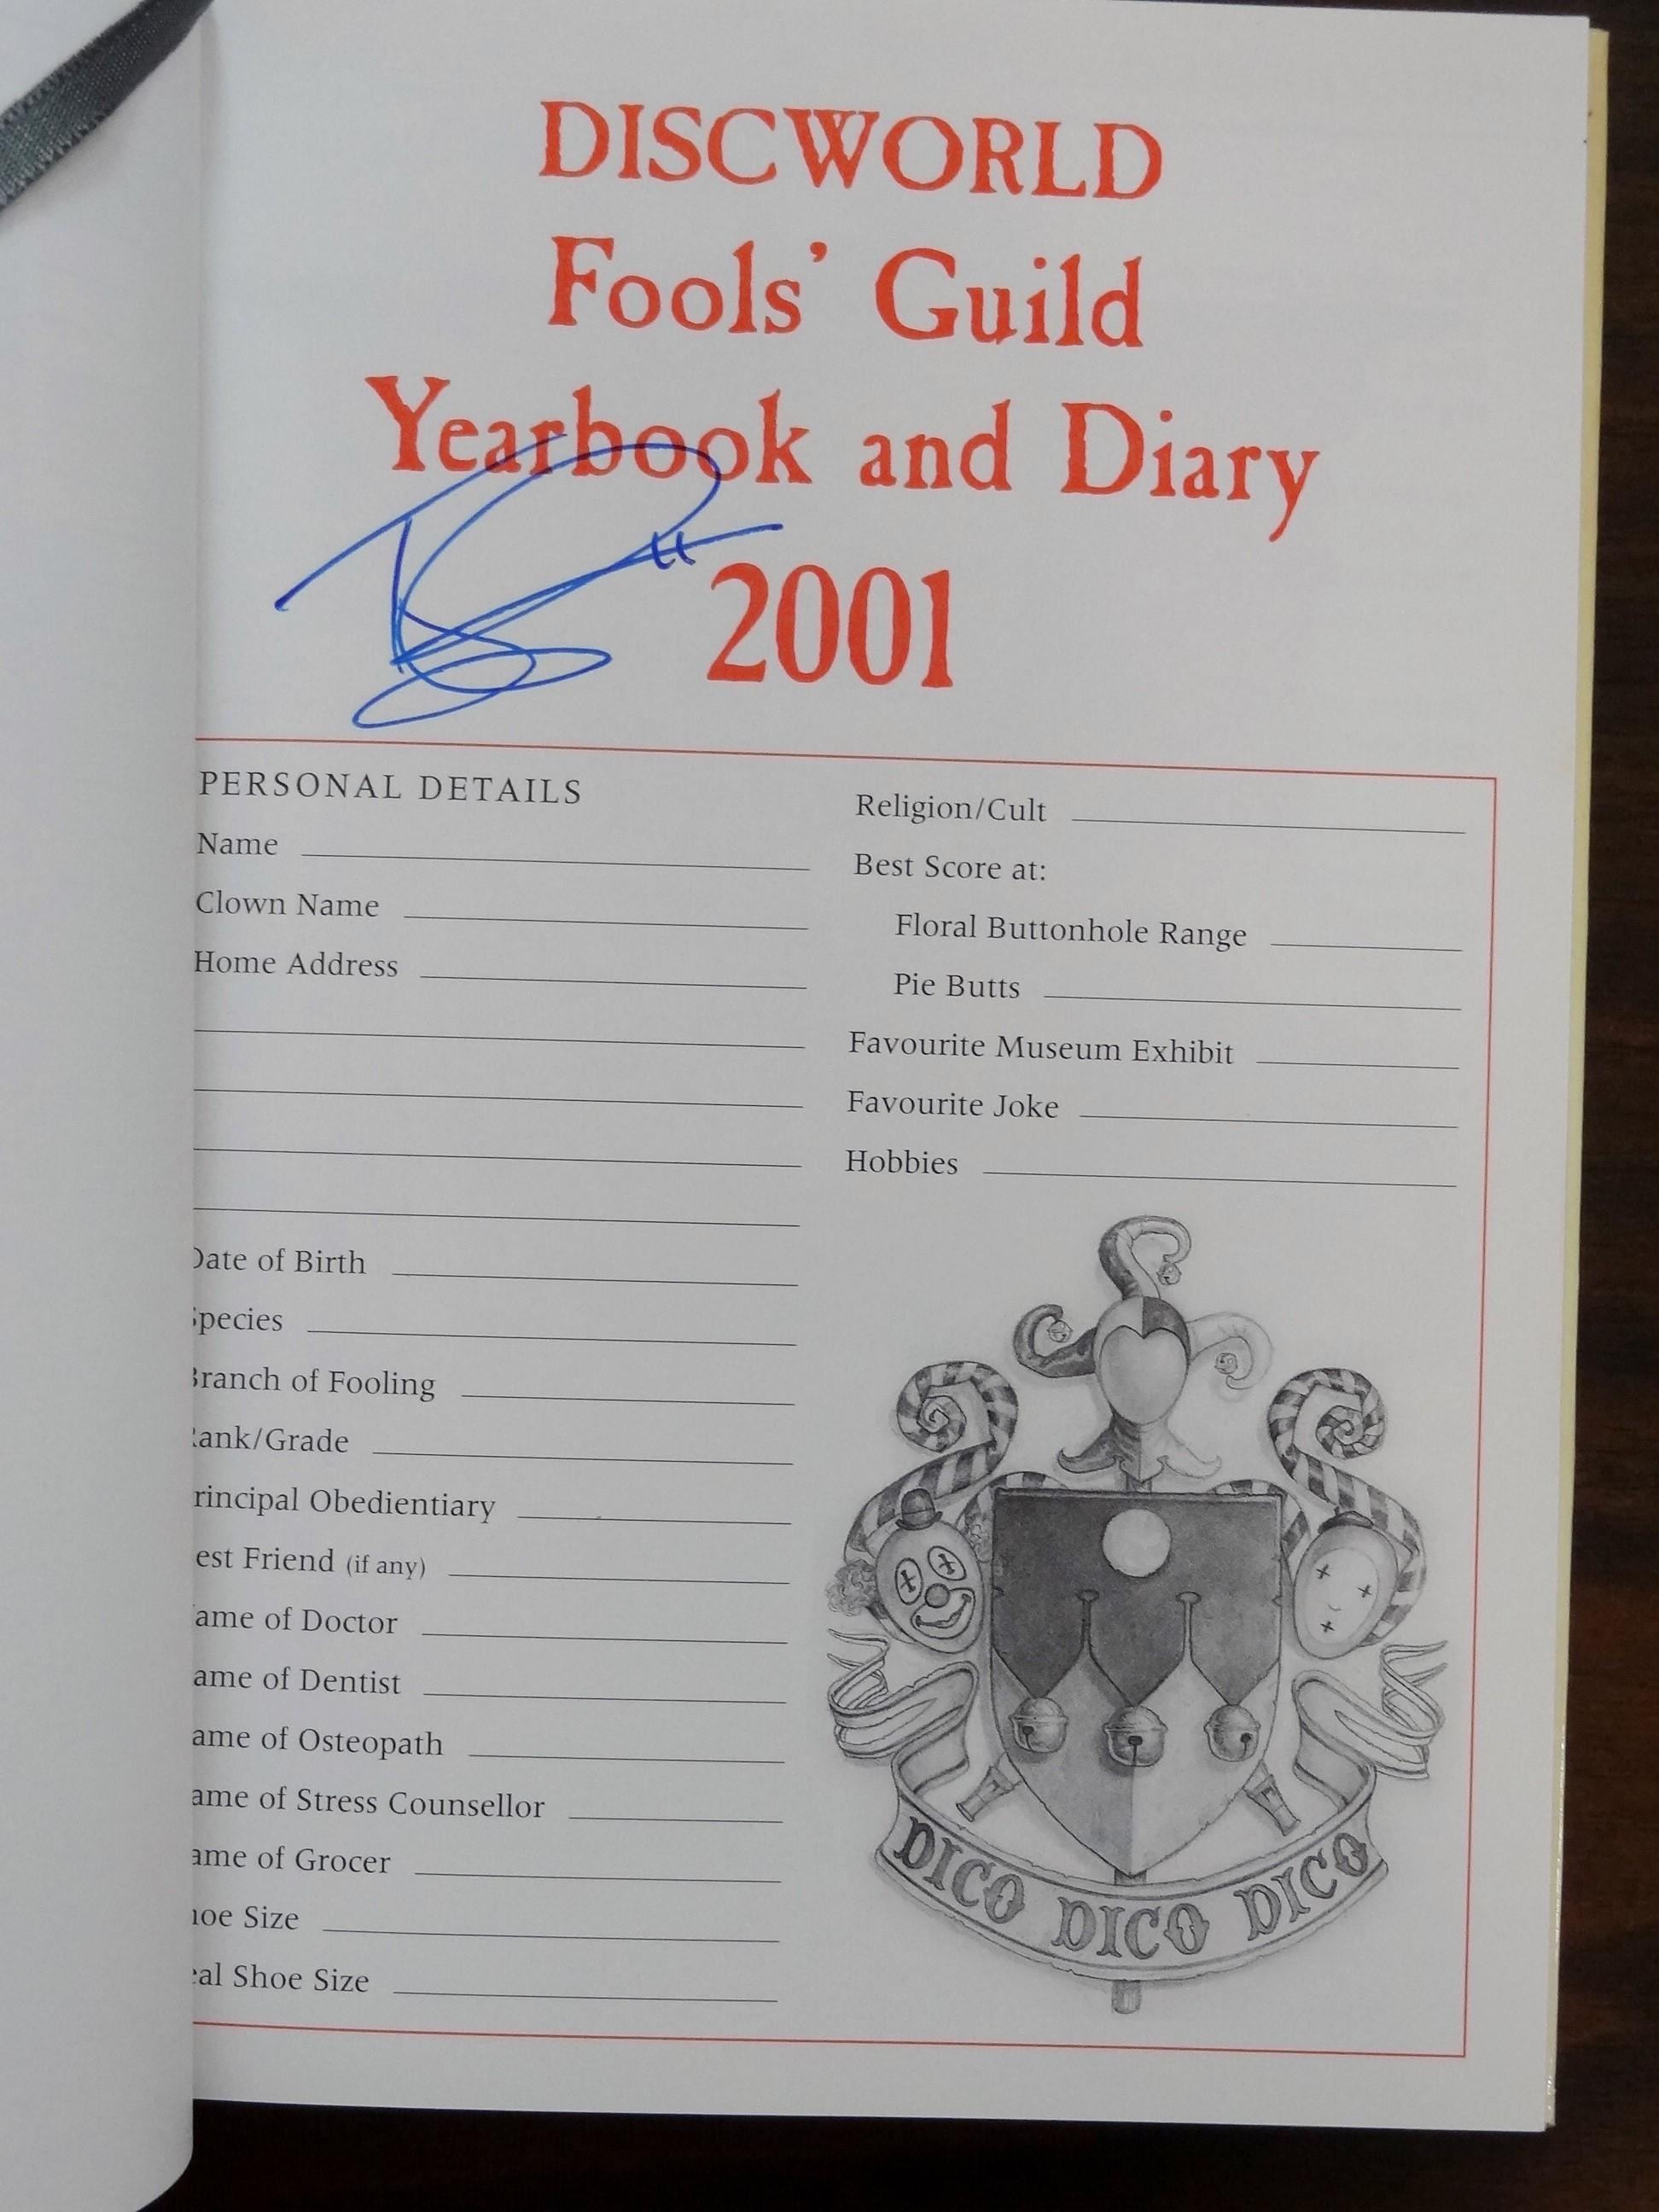 DISCWORLD
Fools' Guild
Yearbook and Diary
2001
PERSONAL DETAILS
Name
Clown Name
Home Address
Date of Birth
Species
Branch of Fooling
Rank/Grade
rincipal Obedientiary
est Friend (if any)
ame of Doctor
ame of Dentist
ame of Osteopath
ame of Stress Counsellor
ame of Grocer
hoe Size
eal Shoe Size
Religion/Cult
Best Score at:
Floral Buttonhole Range
Pie Butts
Favourite Museum Exhibit
Favourite Joke
Hobbies
DICO DICO DICO